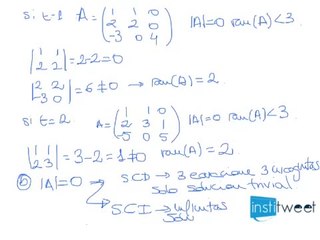 si t=1 A = (1 1 0 / 2 2 0 / -3 0 4) |A|=0 ran(A)<3
|1 1 / 2 2| = 2-2=0
|2 2 / -3 0| = 6≠0 → ran(A)=2
si t=2 A = (1 1 0 / 2 3 1 / -5 0 5) |A|=0 ran(A)<3
|1 1 / 2 3| = 3-2=1≠0 ran(A)=2
b) |A|=0 SCD → 3 ecuaciones 3 incognitas
solo solucion trivial
SCI → infinitas
Sol
institweet